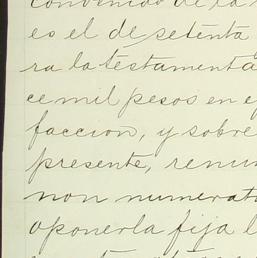 convenido de la
es el de setenta
ra la testamenta
ce mil pesos en e
faccion, y sobre
presente, renun
non numerat
oponerla fija l